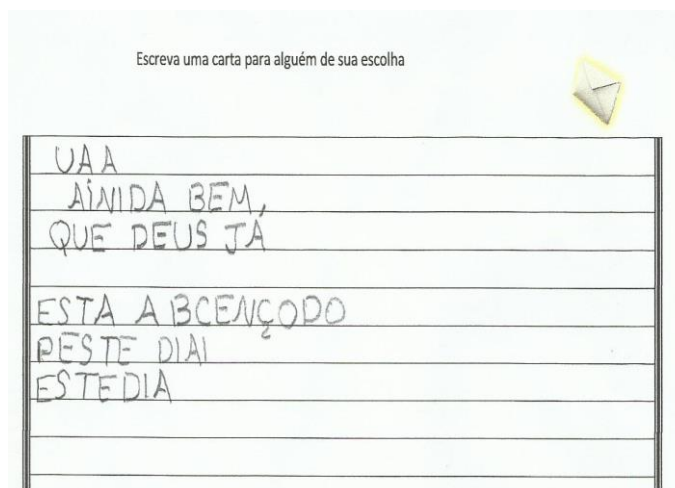 Escreva uma carta para alguém de sua escolha
UAA
AINIDA BEM,
QUE DEUS JÁ
ESTA ABCENÇODO
PESTE DIAI
ESTEDIA